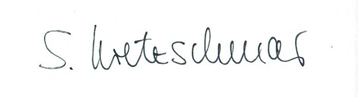 S. Kretzschmar